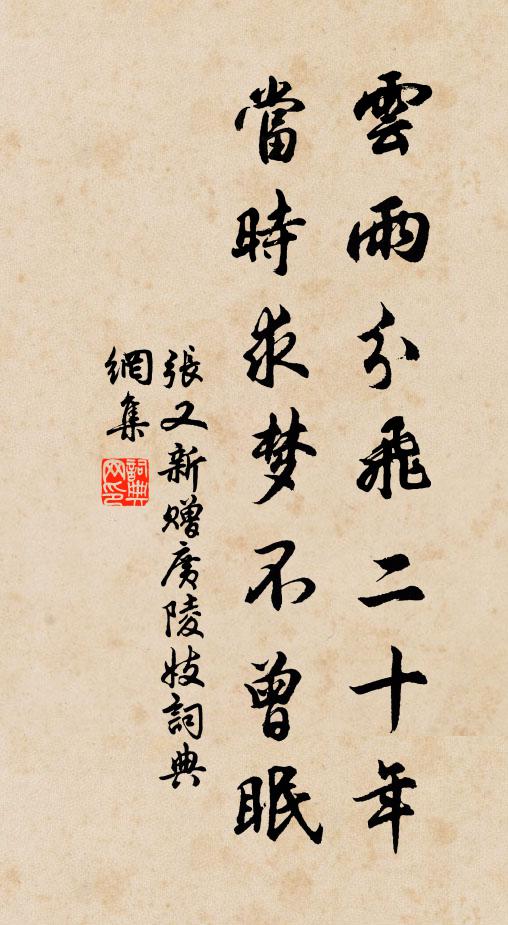 雲雨分飛二十年
當時求梦不曾眠
張又新贈廣陵妓詞典
網集
詞典網印